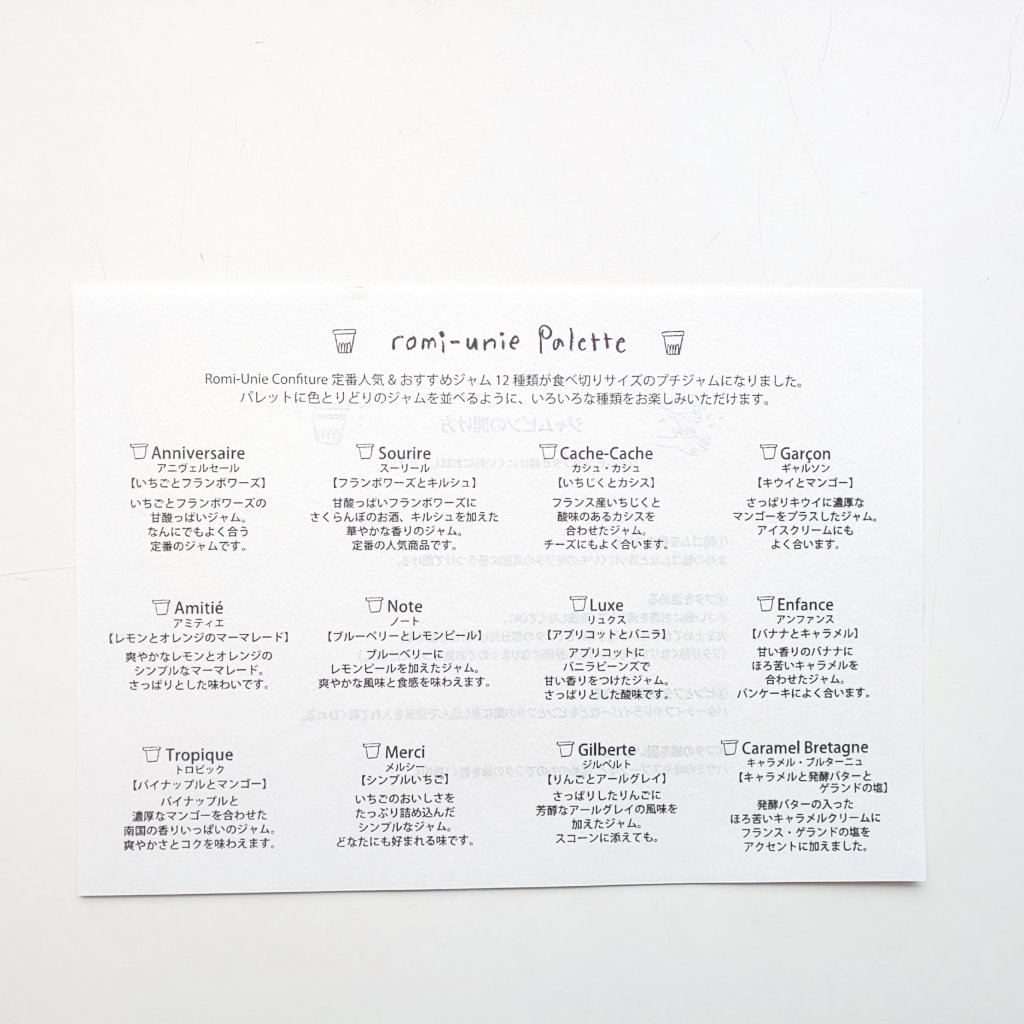 romi-unie Palette
Romi-Unie Confiture 定番人気 & おすすめジャム 12 種類が食べ切りサイズのプチジャムになりました。
パレットに色とりどりのジャムを並べるように、いろいろな種類をお楽しみいただけます。
Anniversaire
アニヴェルセール
【いちごとフランボワーズ】
いちごとフランボワーズの
甘酸っぱいジャム。
なんにでもよく合う
定番のジャムです。
Sourire
スーリール
【フランボワーズとキルシュ】
甘酸っぱいフランボワーズに
さくらんぼのお酒、キルシュを加えた
華やかな香りのジャム。
定番の人気商品です。
Cache-Cache
カシュ・カシュ
【いちじくとカシス】
フランス産いちじくと
酸味のあるカシスを
合わせたジャム。
チーズにもよく合います。
Garçon
ギャルソン
【キウイとマンゴー】
さっぱりキウイに濃厚な
マンゴーをプラスしたジャム。
アイスクリームにも
よく合います。
Amitié
アミティエ
【レモンとオレンジのマーマレード】
爽やかなレモンとオレンジの
シンプルなマーマレード。
さっぱりとした味わいです。
Note
ノート
【ブルーベリーとレモンピール】
ブルーベリーに
レモンピールを加えたジャム。
爽やかな風味と食感を味わえます。
Luxe
リュクス
【アプリコットとバニラ】
アプリコットに
バニラビーンズで
甘い香りをつけたジャム。
さっぱりとした酸味です。
Enfance
アンファンス
【バナナとキャラメル】
甘い香りのバナナに
ほろ苦いキャラメルを
合わせたジャム。
パンケーキによく合います。
Tropique
トロピック
【パイナップルとマンゴー】
パイナップルと
濃厚なマンゴーを合わせた
南国の香りいっぱいのジャム。
爽やかさとコクを味わえます。
Merci
メルシー
【シンプルいちご】
いちごのおいしさを
たっぷり詰め込んだ
シンプルなジャム。
どなたにも好まれる味です。
Gilberte
ジルベルト
【りんごとアールグレイ】
さっぱりしたりんごに
芳醇なアールグレイの風味を
加えたジャム。
スコーンに添えても。
Caramel Bretagne
キャラメル・ブルターニュ
【キャラメルと発酵バターと
ゲランドの塩】
発酵バターの入った
ほろ苦いキャラメルクリームに
フランス・ゲランドの塩を
アクセントに加えました。